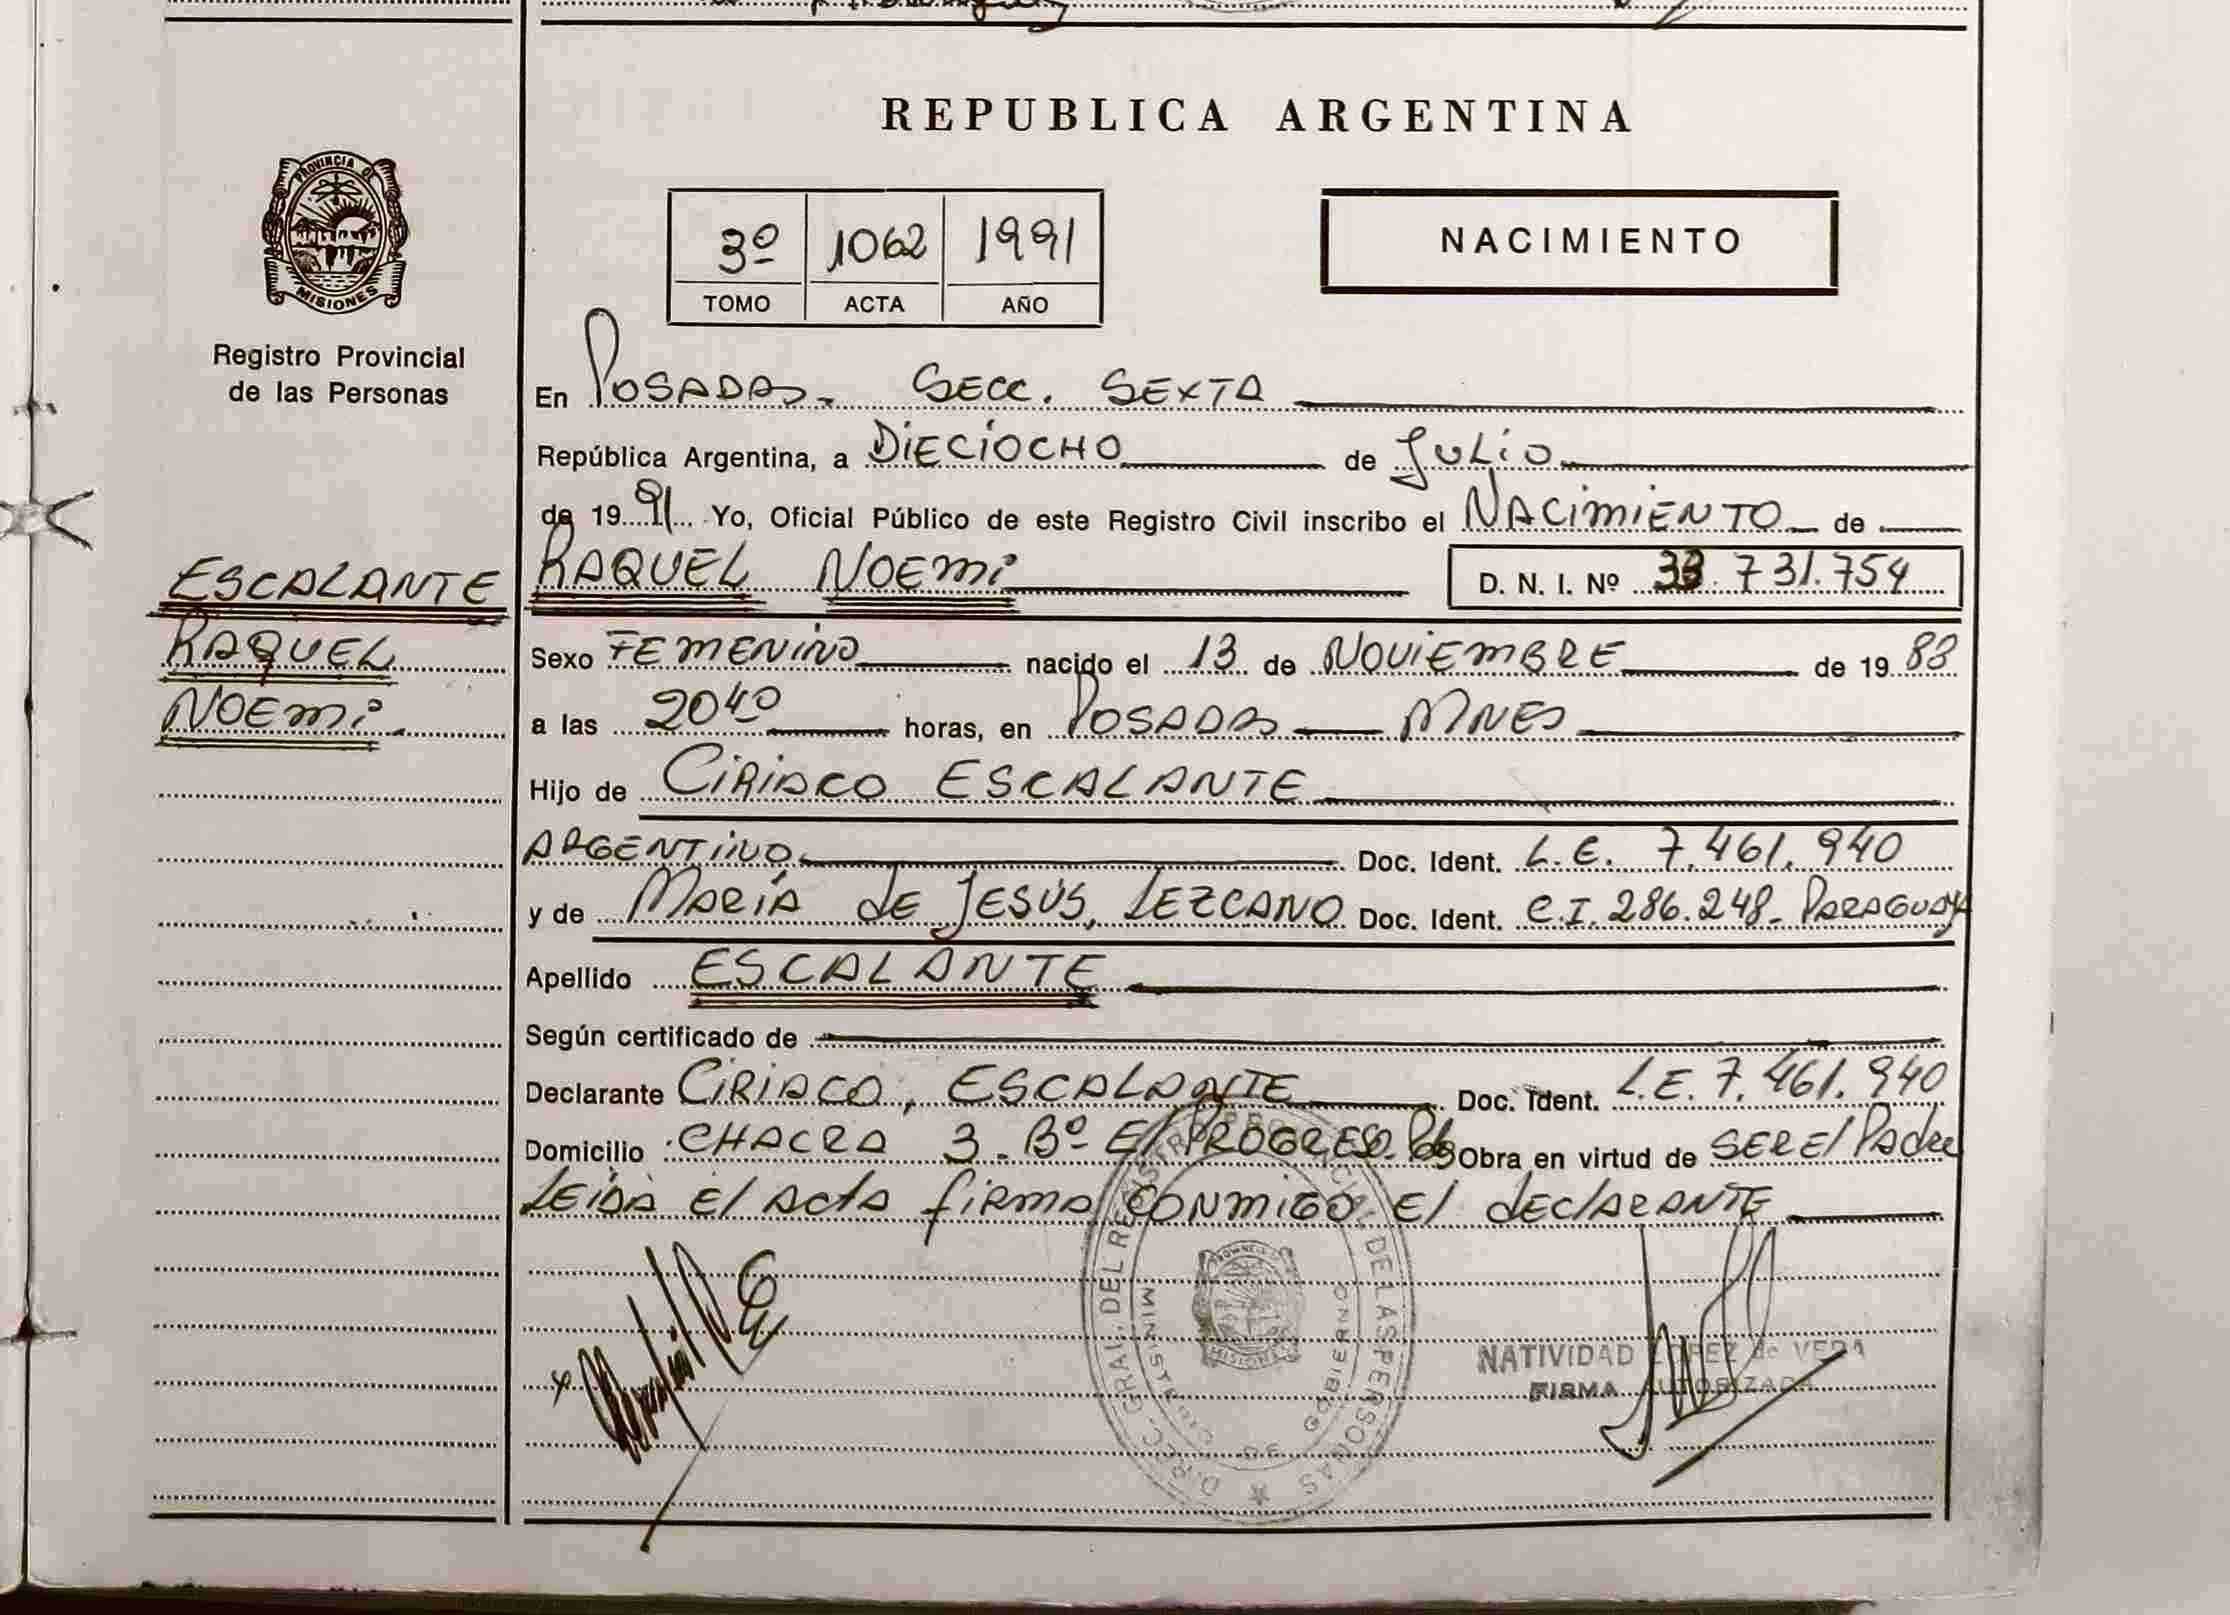 REPUBLICA ARGENTINA
PROVINCIA DE
MISIONES
Registro Provincial
de las Personas
3º 1062 1991
TOMO ACTA AÑO
NACIMIENTO
En POSADAS. SECC. SEXTA
República Argentina, a DIECIOCHO de JULIO
de 1991 Yo, Oficial Público de este Registro Civil inscribo el NACIMIENTO de
RAQUEL NOEMI D. N. I. Nº 33.731.754
ESCALANTE
RAQUEL
NOEMI.
Sexo FEMENINO nacido el 13 de NOVIEMBRE de 1988
a las 20⁴⁰ horas, en POSADAS MNES
Hijo de CIRIACO ESCALANTE
ARGENTINO Doc. Ident. L.E. 7.461.940
y de MARÍA dE JESÚS, LEZCANO Doc. Ident. C.I. 286.248- PARAGUAYA
Apellido ESCALANTE
Según certificado de
Declarante CIRIACO, ESCALANTE Doc. Ident. L.E. 7.461.940
Domicilio CHACRA 3. Bº El PROGRESO. Pdas Obra en virtud de SER El Padre
LEIDA El Acta firma CONMIGO El declARANTE
DIREC. GRAL. DEL REGISTRO PROVINCIAL DE LAS PERSONAS
MINISTERIO DE GOBIERNO
PROVINCIA DE
MISIONES
NATIVIDAD LOPEZ de VERA
FIRMA AUTORIZADA